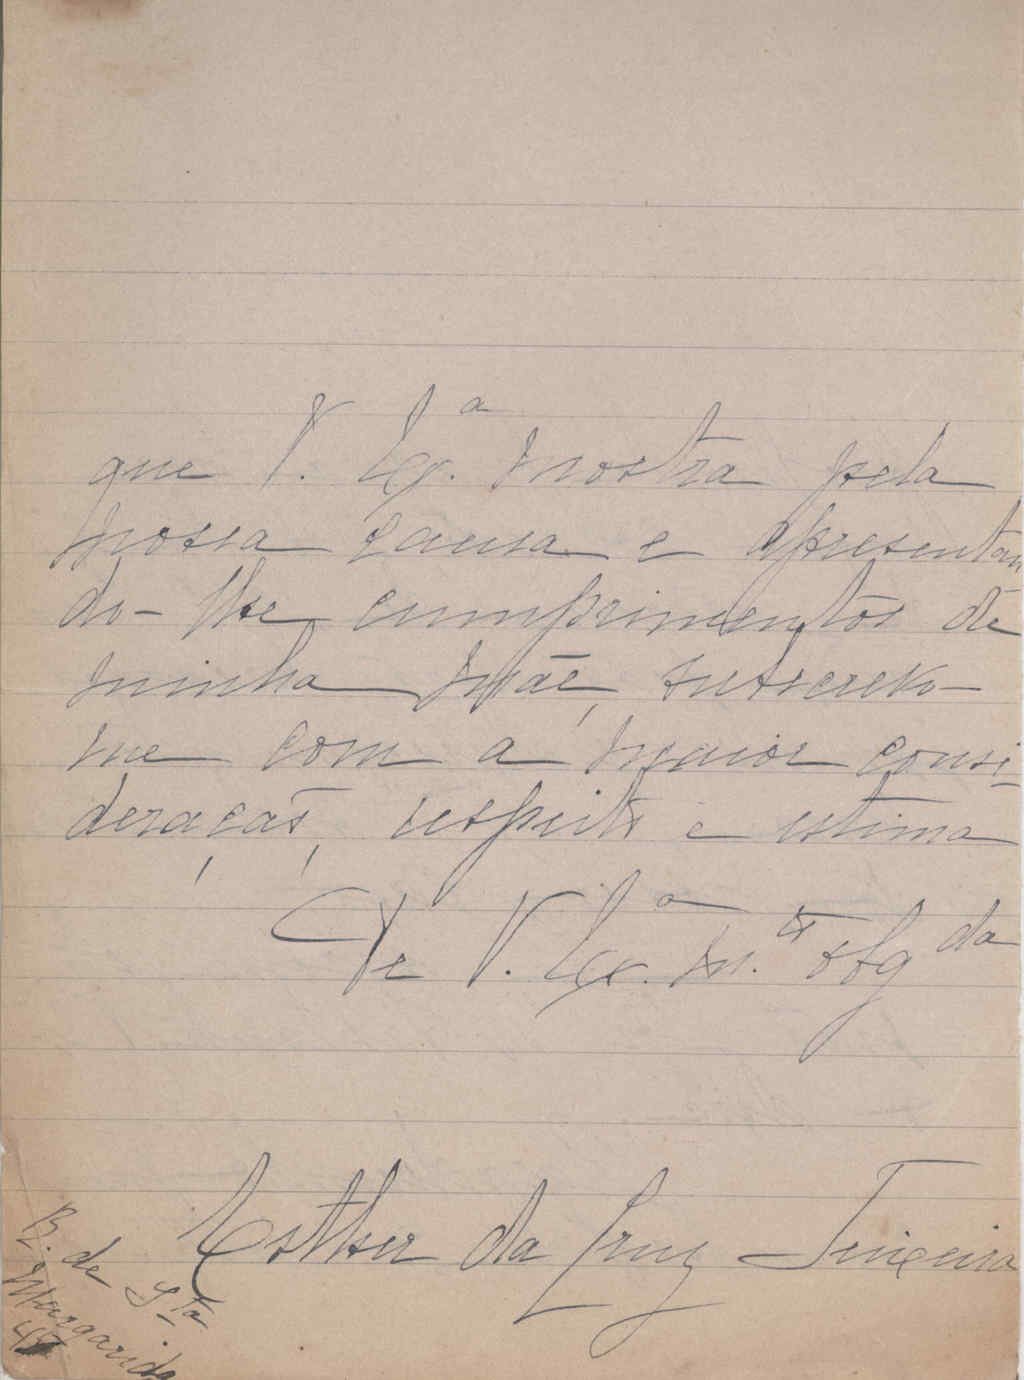 que V. Ex.ª mostra pela
nossa causa e apresentan
do-lhe cumprimentos de
minha mãe, subscrevo-
me com a maior consi-
deração, respeito e estima
De V. Ex.ª m.to obg.da
Esther da Cruz Teixeira
R. de S.ta
Margarida